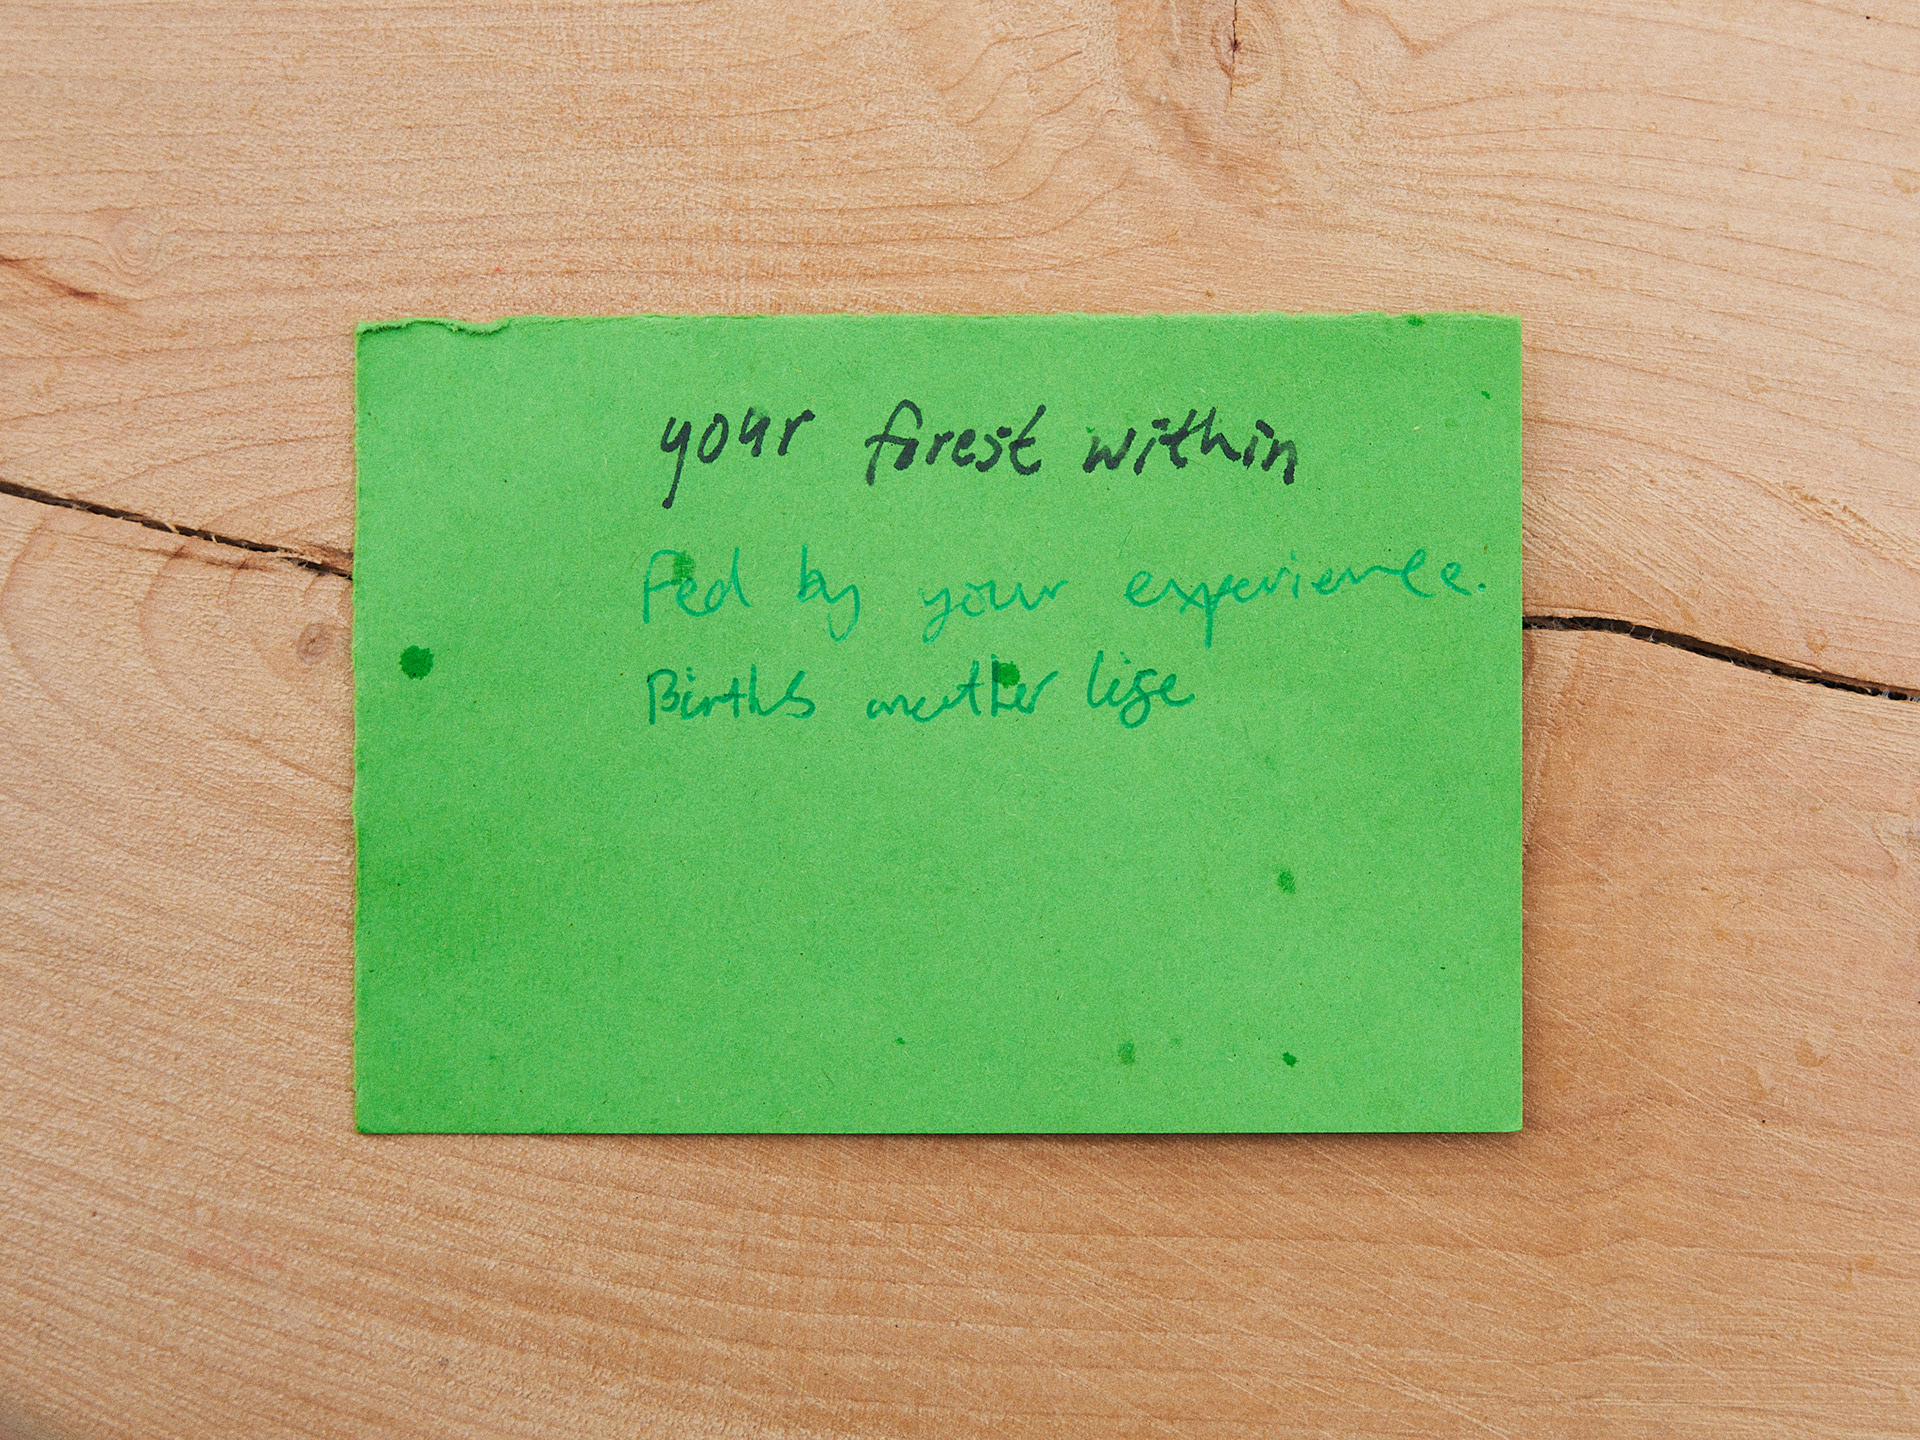 your forest within
Fed by your experience.
Births another life